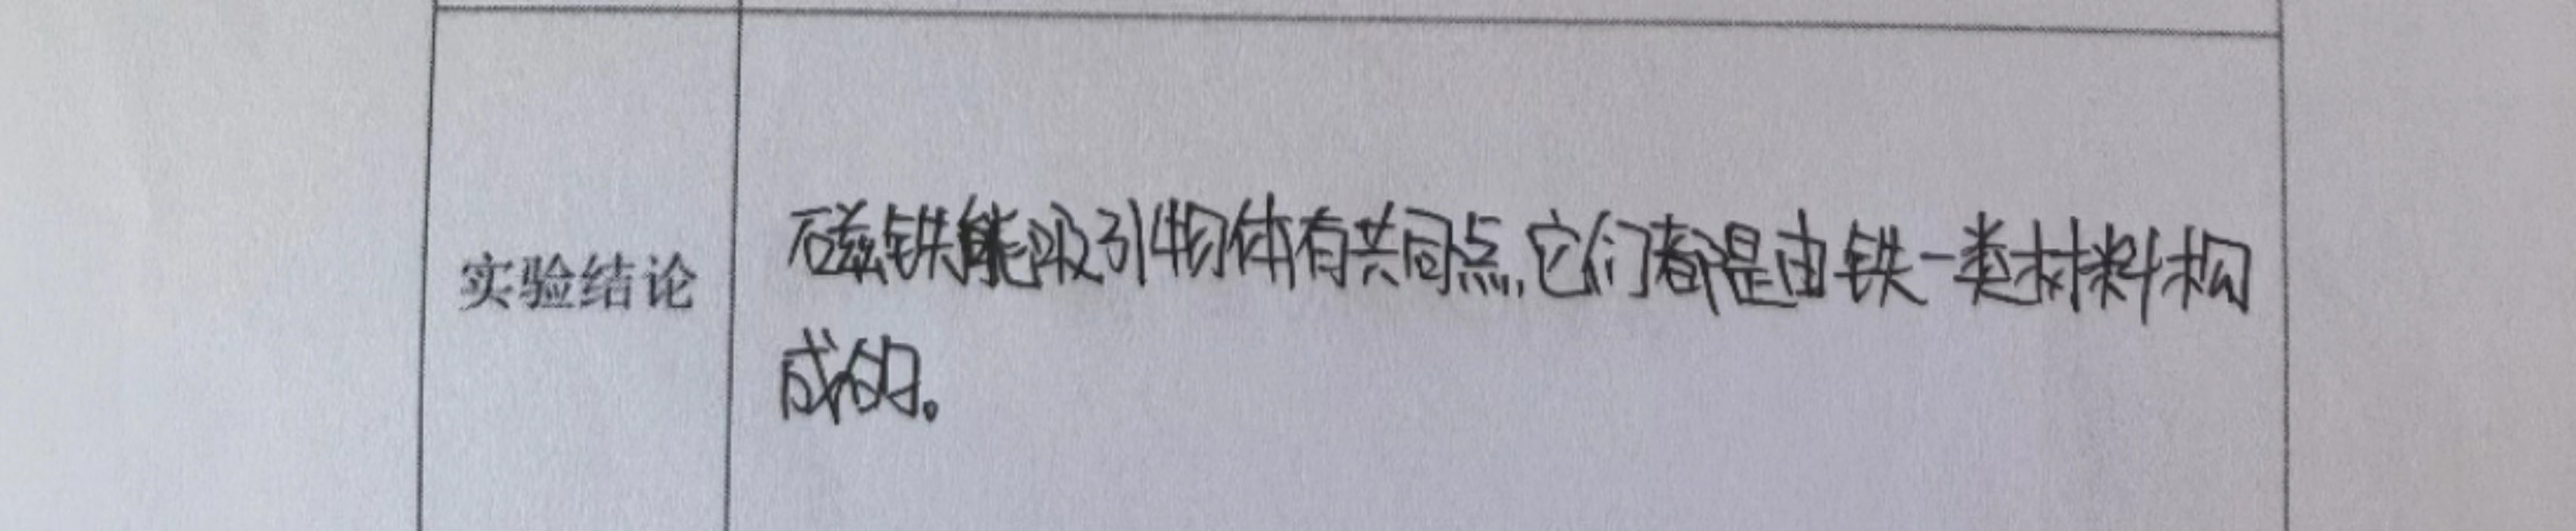 实验结论
磁铁能吸引物体有共同点,它们都是由铁一类材料构
成的。